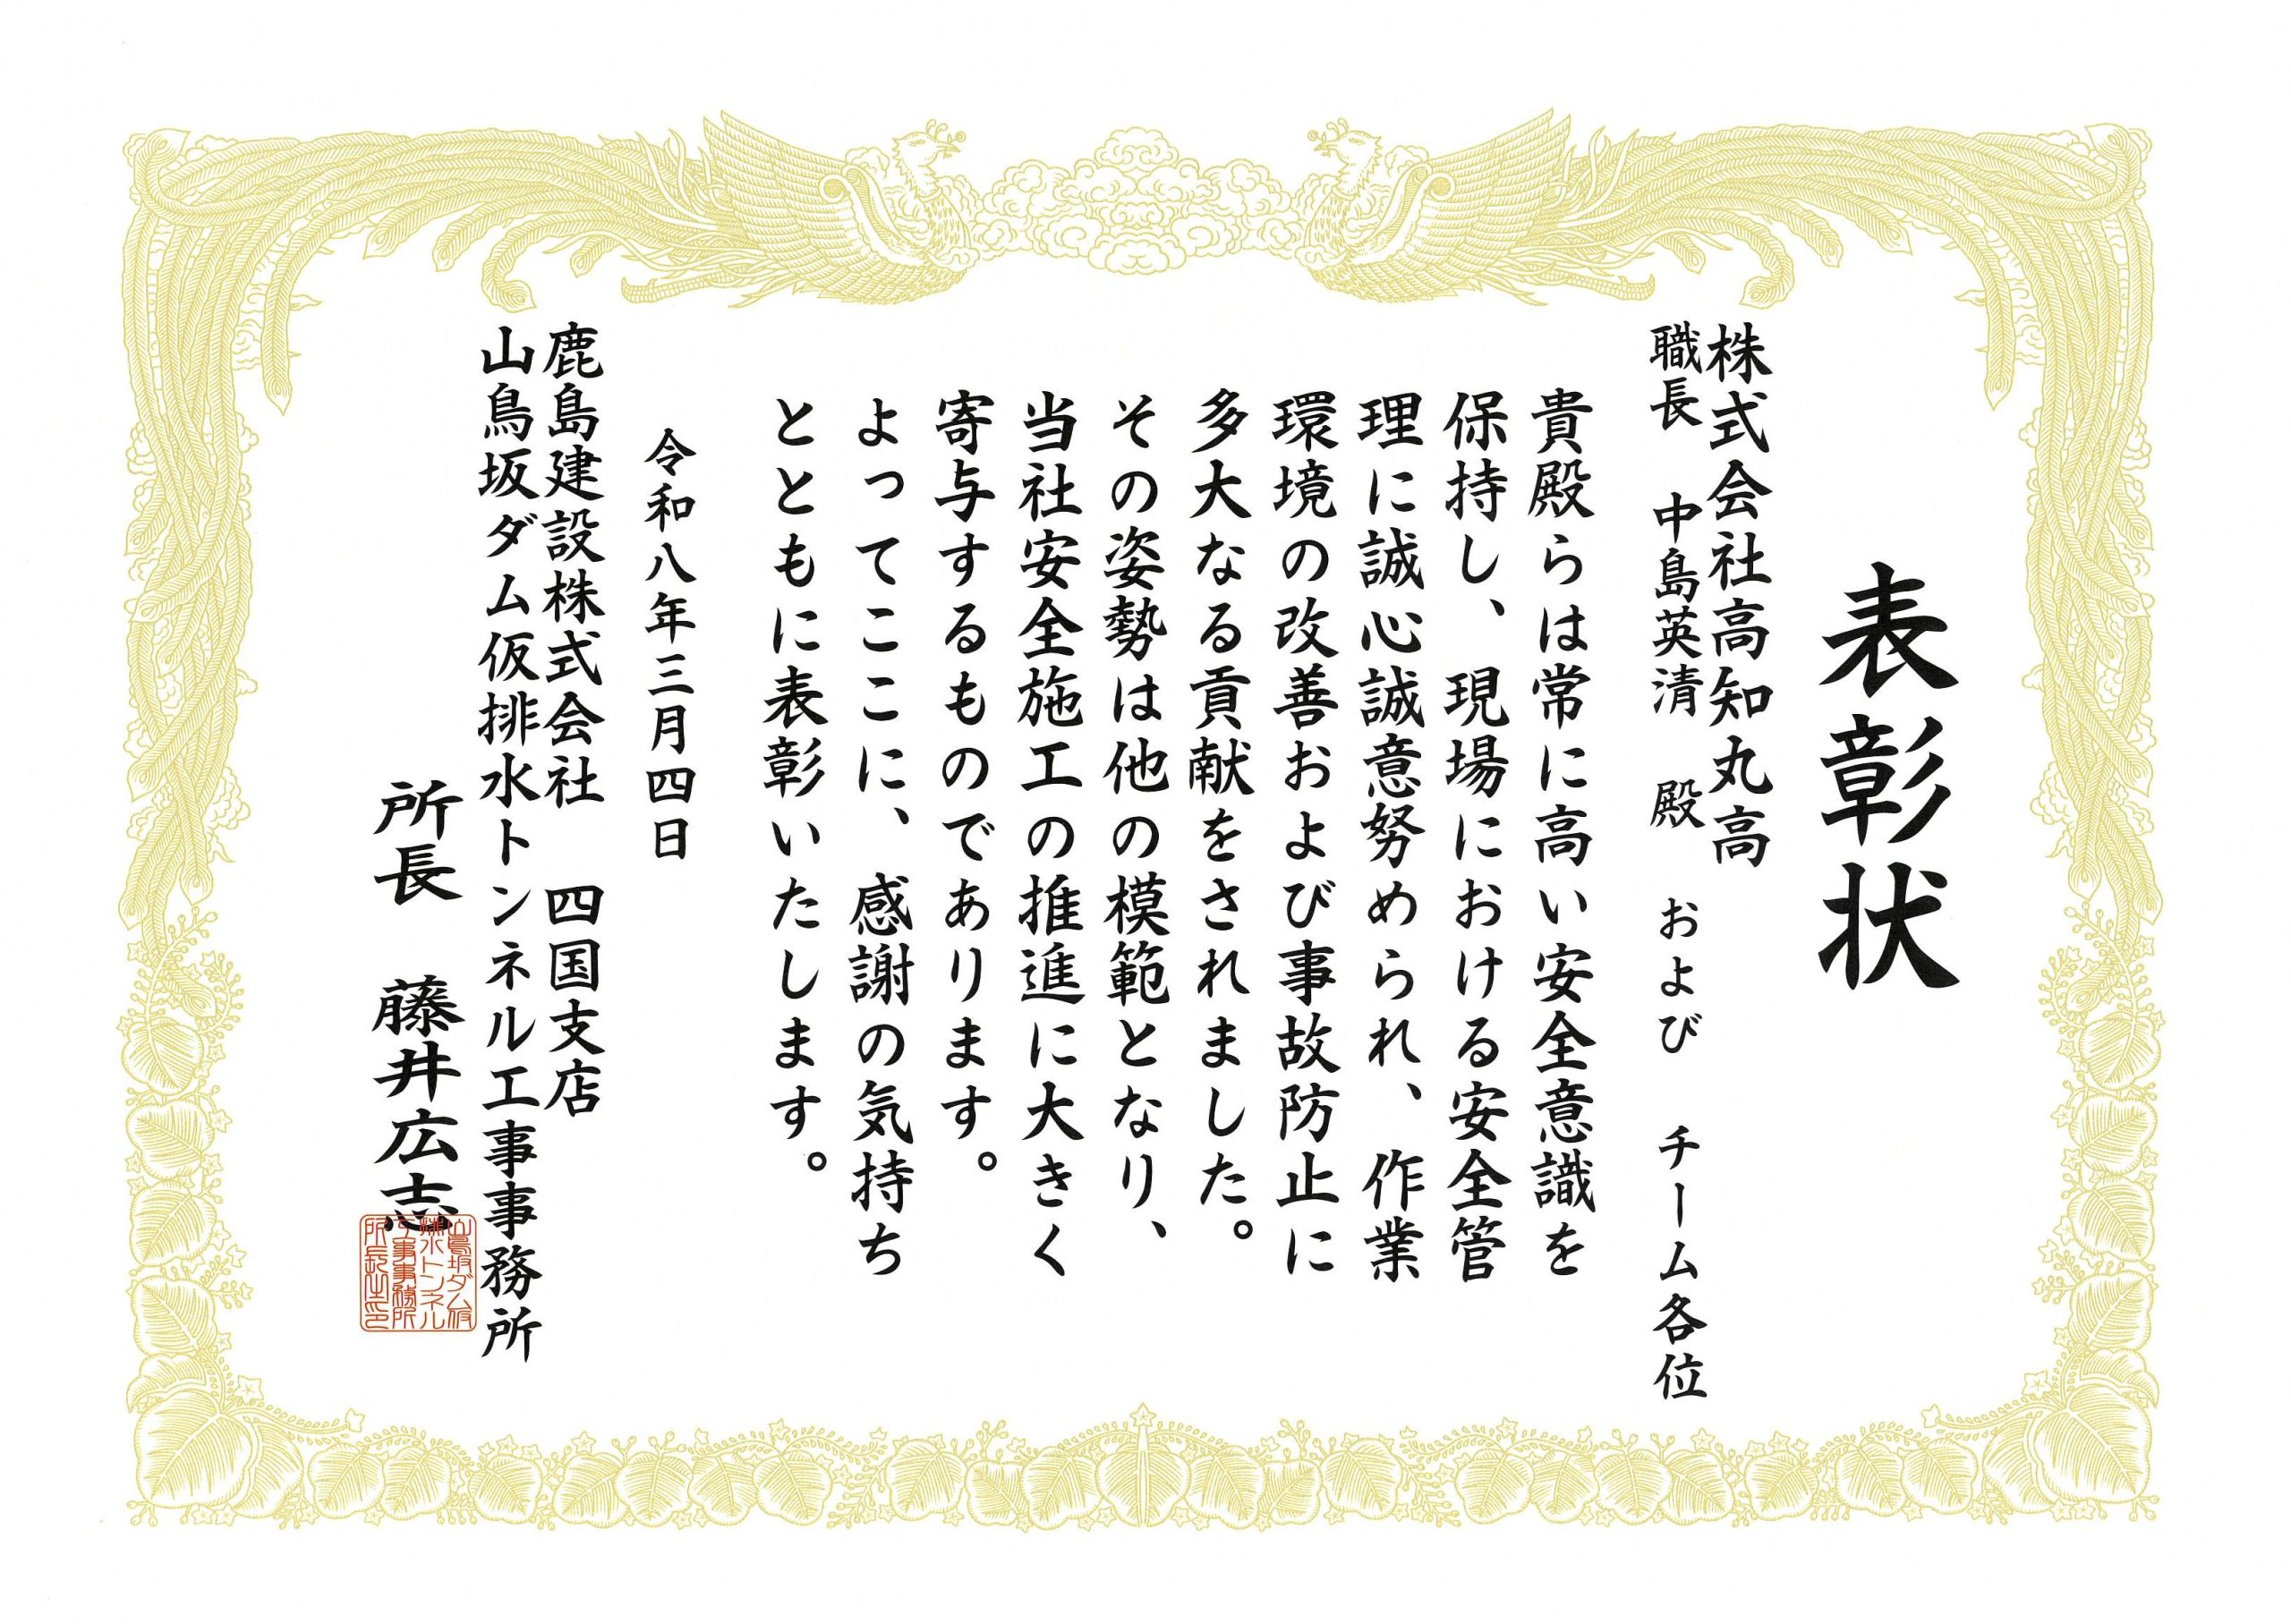 表彰状
株式会社高知丸高
職長 中島英清 殿 および チーム各位
貴殿らは常に高い安全意識を
保持し、現場における安全管
理に誠心誠意努められ、作業
環境の改善および事故防止に
多大なる貢献をされました。
その姿勢は他の模範となり、
当社安全施工の推進に大きく
寄与するものであります。
よってここに、感謝の気持ち
とともに表彰いたします。
令和八年三月四日
鹿島建設株式会社 四国支店
山鳥坂ダム仮排水トンネル工事事務所
所長 藤井広志
山鳥坂ダム仮
排水トンネル
工事事務所
所長之印